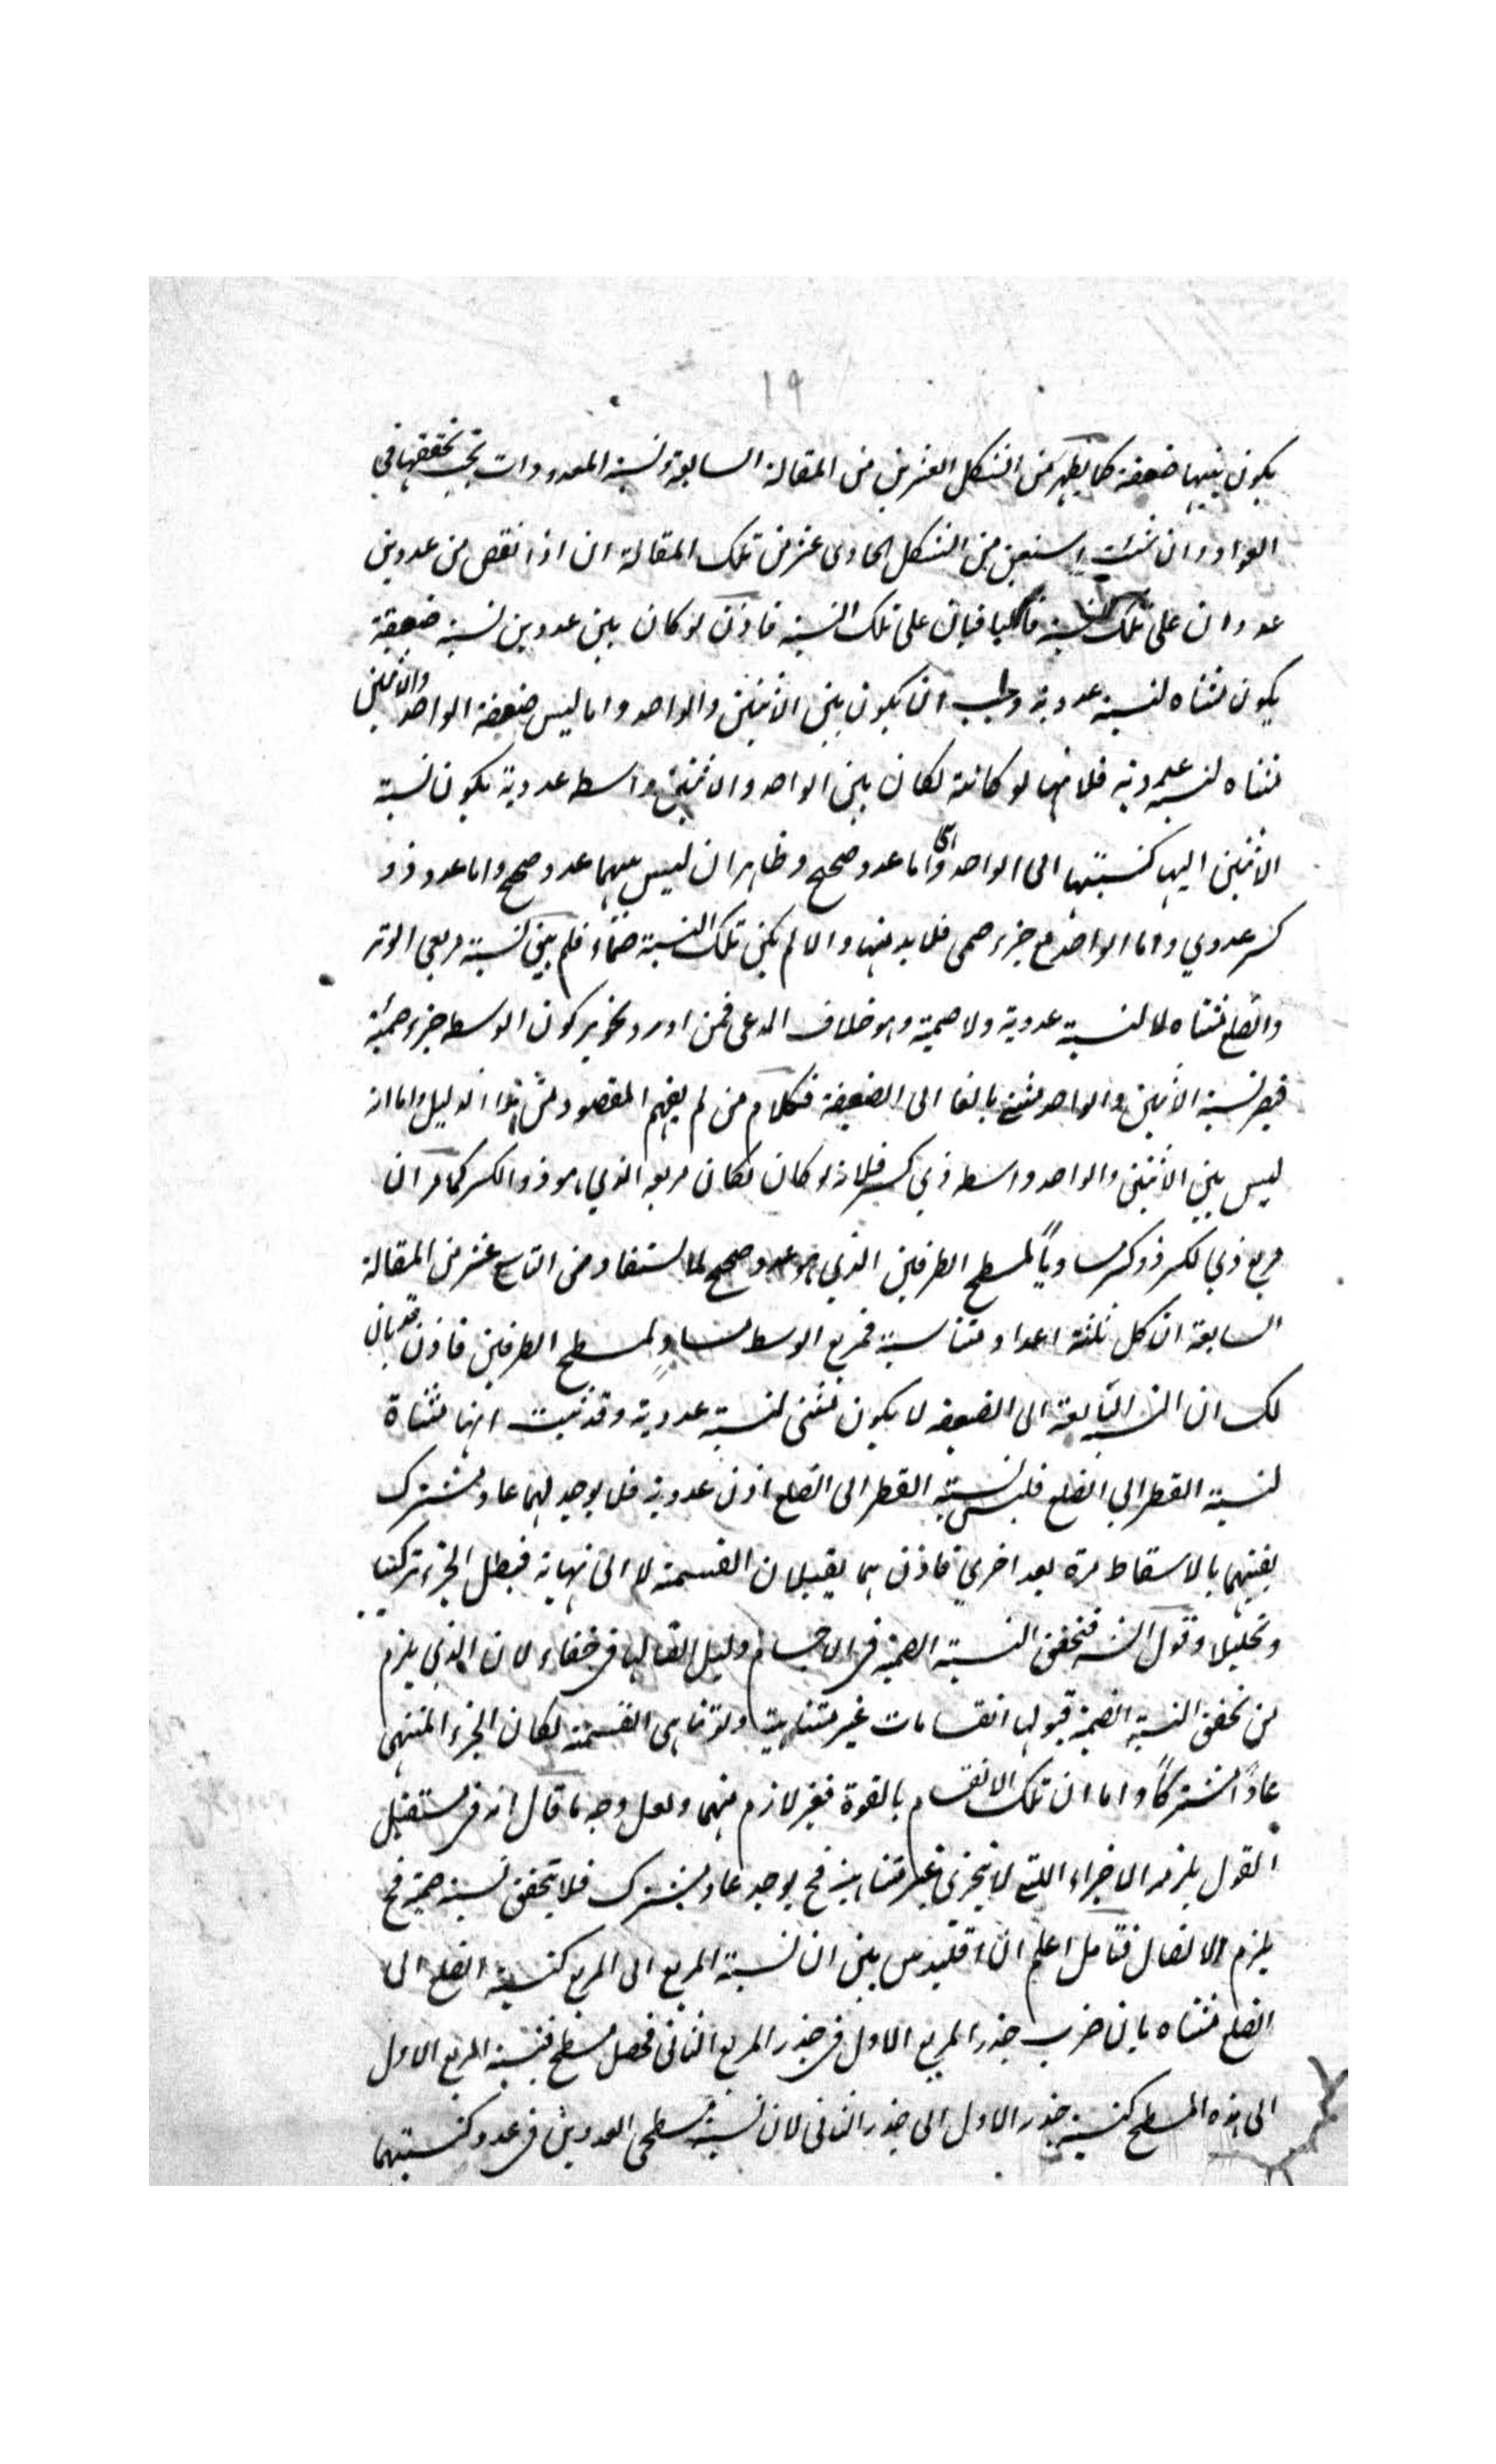 ١٩
يكون بينها ضعفة كما يظهر من الشكل العشرين من المقالة السابعة ونسبة المعدودات تجب تحققها في
الواد وان شئت استعن من الشكل الحادى عشر من تلك المقالة ان اذا نقص من عددين
عددان على تلك النسبة فالباقيان على تلك النسبة فاذن لو كان بين عددين نسبة ضعيفة
يكون مثناه لنسبة عددية وجب ان يكون بين الاثنين والواحد واما ليس ضعفة الواحد والاثنين
مثناه لنسبة عددية فلانها لو كانت لكان بين الواحد والاثنين واسط عددية يكون نسبة
الاثنين اليها كنسبتها الى الواحد واما عدد صحيح وظاهر ان ليس بينهما عدد صحيح واما عدد ذو
كسر عددي واما الواحد مع جزء صمى فلا بد منها والا لم يكن تلك النسبة فلم يبق نسبة مربعي الوتر
والضلع مثناه لا لنسبة عددية ولا صمية وهو خلاف المدعى فمن اورد تجويز كون الوسط جزء صمية
فيصر نسبة الاثنين والواحد مثنى بالغا الى الضعفة فكلام من لم يفهم المقصود من هذا الدليل واما انه
ليس بين الاثنين والواحد واسط ذي كسر فلانه لو كان لكان مربعه الذي هو ذو الكسر كما مر ان
مربع ذي الكسر ذو كسر مساوياً لمسطح الطرفين الذي هو عدد صحيح لما استفاد من التاسع عشر من المقالة
السابعة ان كل ثلثة اعداد متناسبة فمربع الوسط مساوٍ لمسطح الطرفين فاذن قد بان
لك ان النسبة البالغة الى الضعف لا يكون مثنى لنسبة عددية وقد ثبت انها مثناة
لنسبة القطر الى الضلع فليس نسبة القطر الى الضلع اذن عددية فلا يوجد لهما عاد مشترك
يفنيهما بالاسقاط مرة بعد اخري فاذن هما يقبلان القسمة لا الى نهاية فبطل الجزء تركبا
وتحليلا وقول الشه فتحقق النسبة الصمية في الاجسام دليل القا لها في خفاء لان الذي يلزم
من تحقق النسبة الصمية قبولها انقسامات غير متناهية ولو تناهى القسمة لكان الجزء المنتهى
عاداً مشتركاً واما ان تلك الانقسام بالقوة فغير لازم منهما ولعل وجه ما قال انه في مستقبل
القول يلزمه الاجزاء التي لا يتجزى غير متناهية فح يوجد عاد مشترك فلا تحقق نسبة صمية فح
يلزم الاتصال فتامل اعلم ان اقليدس بين ان نسبة المربع الى المربع كنسبة الضلع الى
الضلع مثناه بان ضرب جذر المربع الاول في جذر المربع الثاني فحصل مسطح فنسبة المربع الاول
الى هذه المسطح كنسبة جذر الاول الى جذر الثاني لان نسبة مسطحى العددين في عدد كنسبتهما